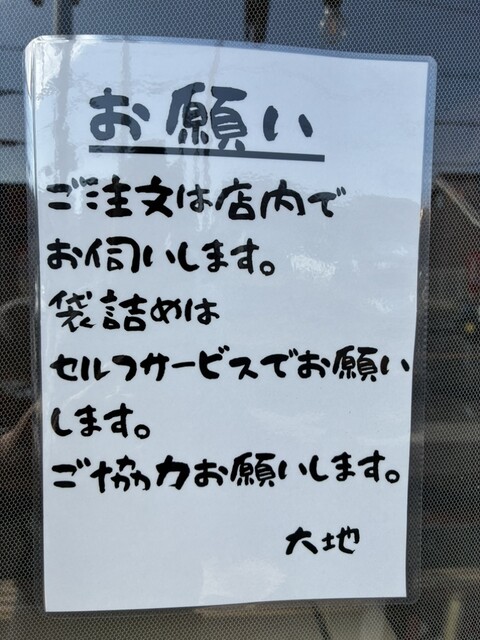 お願い
ご注文は店内で
お伺いします。
袋詰めは
セルフサービスでお願い
します。
ご協力お願いします。
大地